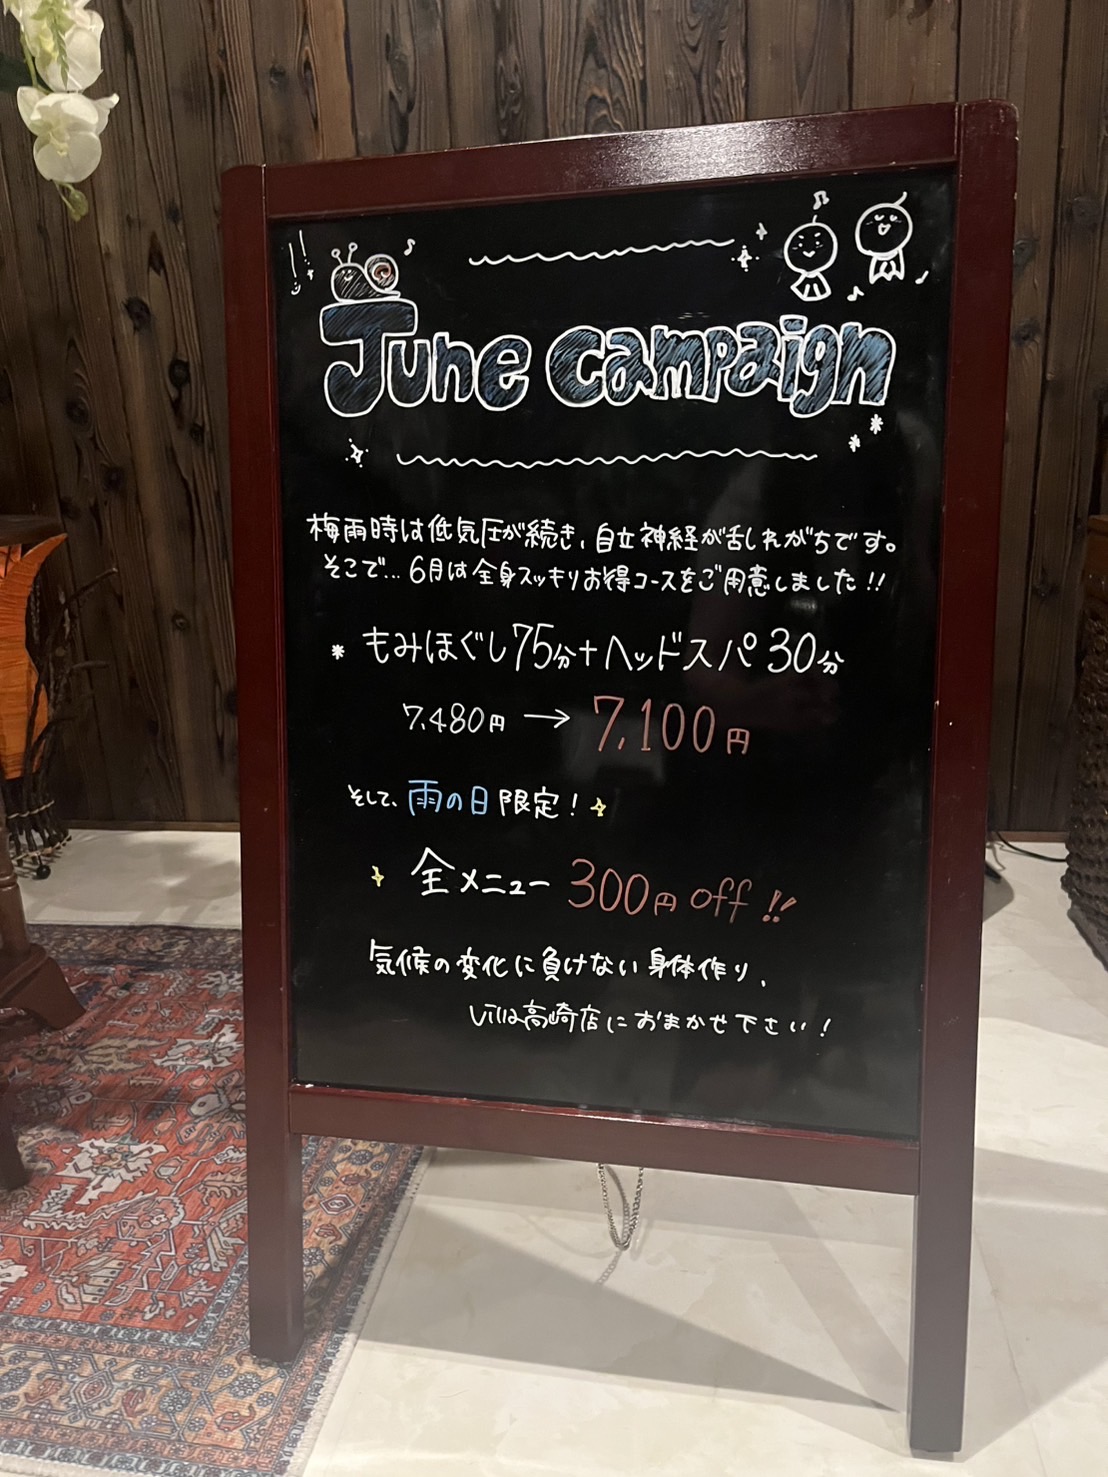 June campaign
梅雨時は低気圧が続き、自立神経が乱れがちです。
そこで…6月は全身スッキリお得コースをご用意しました!!
* もみほぐし75分+ヘッドスパ30分
7,480円 → 7,100円
そして、雨の日限定!
全メニュー 300円off!!
気候の変化に負けない身体作り、
Villa高崎店におまかせ下さい!